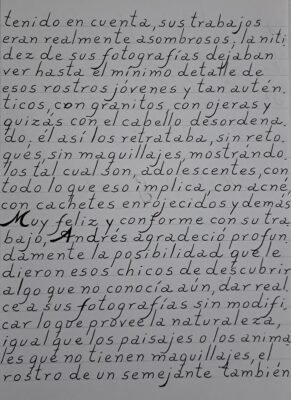 tenido en cuenta, sus trabajos
eran realmente asombrosos: la niti
dez de sus fotografías dejaban
ver hasta el mínimo detalle de
esos rostros jóvenes y tan autén.
ticos, con granitos, con ojeras y
quizás con el cabello desordena.
do, él así los retrataba, sin reto.
ques, sin maquillajes, mostrándo.
los tal cual son, adolescentes, con
todo lo que eso implica, con acné,
con cachetes enrojecidos y demás
Muy feliz y conforme con su tra.
bajo, Andrés agradeció profun
damente la posibilidad que le
dieron esos chicos de descubrir
algo que no conocía aún, dar real.
ce a sus fotografías sin modifi.
car lo que provee la naturaleza,
igual que los paisajes o los anima
les que no tienen maquillajes, el
rostro de un semejante también